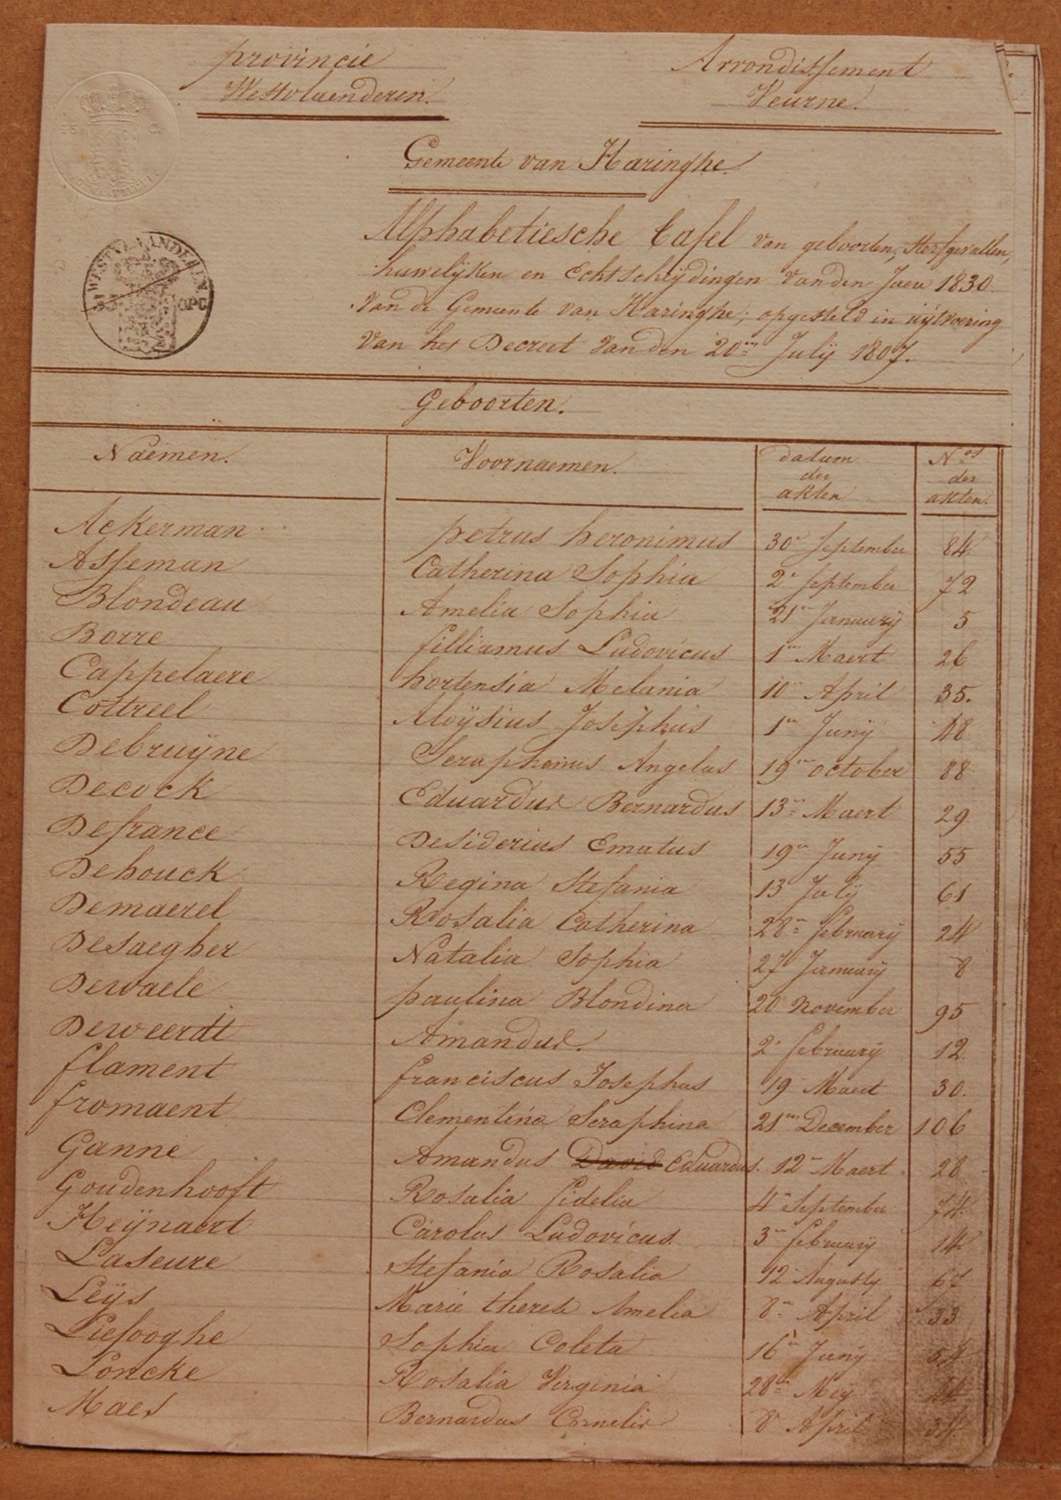 provincie
Westvlaenderen.
Arrondissement
Veurne.
Gemeente van Haringhe.
WESTVLAENDEREN
Alphabetiesche tafel van geboorten, sterfgevallen,
huwelijken en Echtscheijdingen van den Jaere 1830
van de Gemeente van Haringhe; opgesteld in uijtvoering
van het Decreet van den 20en Julij 1807.
Geboorten.
Naemen. Voornaemen. datum der akten Nos der akten.
Ackerman petrus heronimus 30n September 84
Asseman Catherina Sophia 2n September 72
Blondeau Amelia Sophia 21en Januarij 5
Borre filliamus Ludovicus 1en Maert 26
Cappelaere hortensia Melania 10en April 35.
Cottreel Aloÿsius Josephus 1en Junij 48
Debruÿne Seraphinus Angelus 19en october 88
Decock Eduardus Bernardus 13en Maert 29
Defrance Desiderius Ematus 19en Junij 55
Dehouck Regina Stefania 13 Julij 61
Demaerel Rosalia Catherina 28en february 24
Desaegher Natalia Sophia 27 Januarij 8
Dewaele paulina Blondina 20 november 95
Deweerdt Amandus. 2n februarij 12
flament franciscus Josephus 19 Maert 30.
fromaent Clementina Seraphina 21en December 106
Ganne Amandus David Eduardus. 12en Maert 28
Goudenhooft Rosalia fidelia 4n September 74
Heÿnaert Carolus Ludovicus 3en februarij 14
Laseure Stefania Rosalia 12 Augusty 67
Leÿs Marie therese Amelia 8en April 33
Liefooghe Sophia Coleta 16n Junij 54
Loncke Rosalia Virginia 28en Meij 44
Maes Bernardus Cornelis 8 April 34